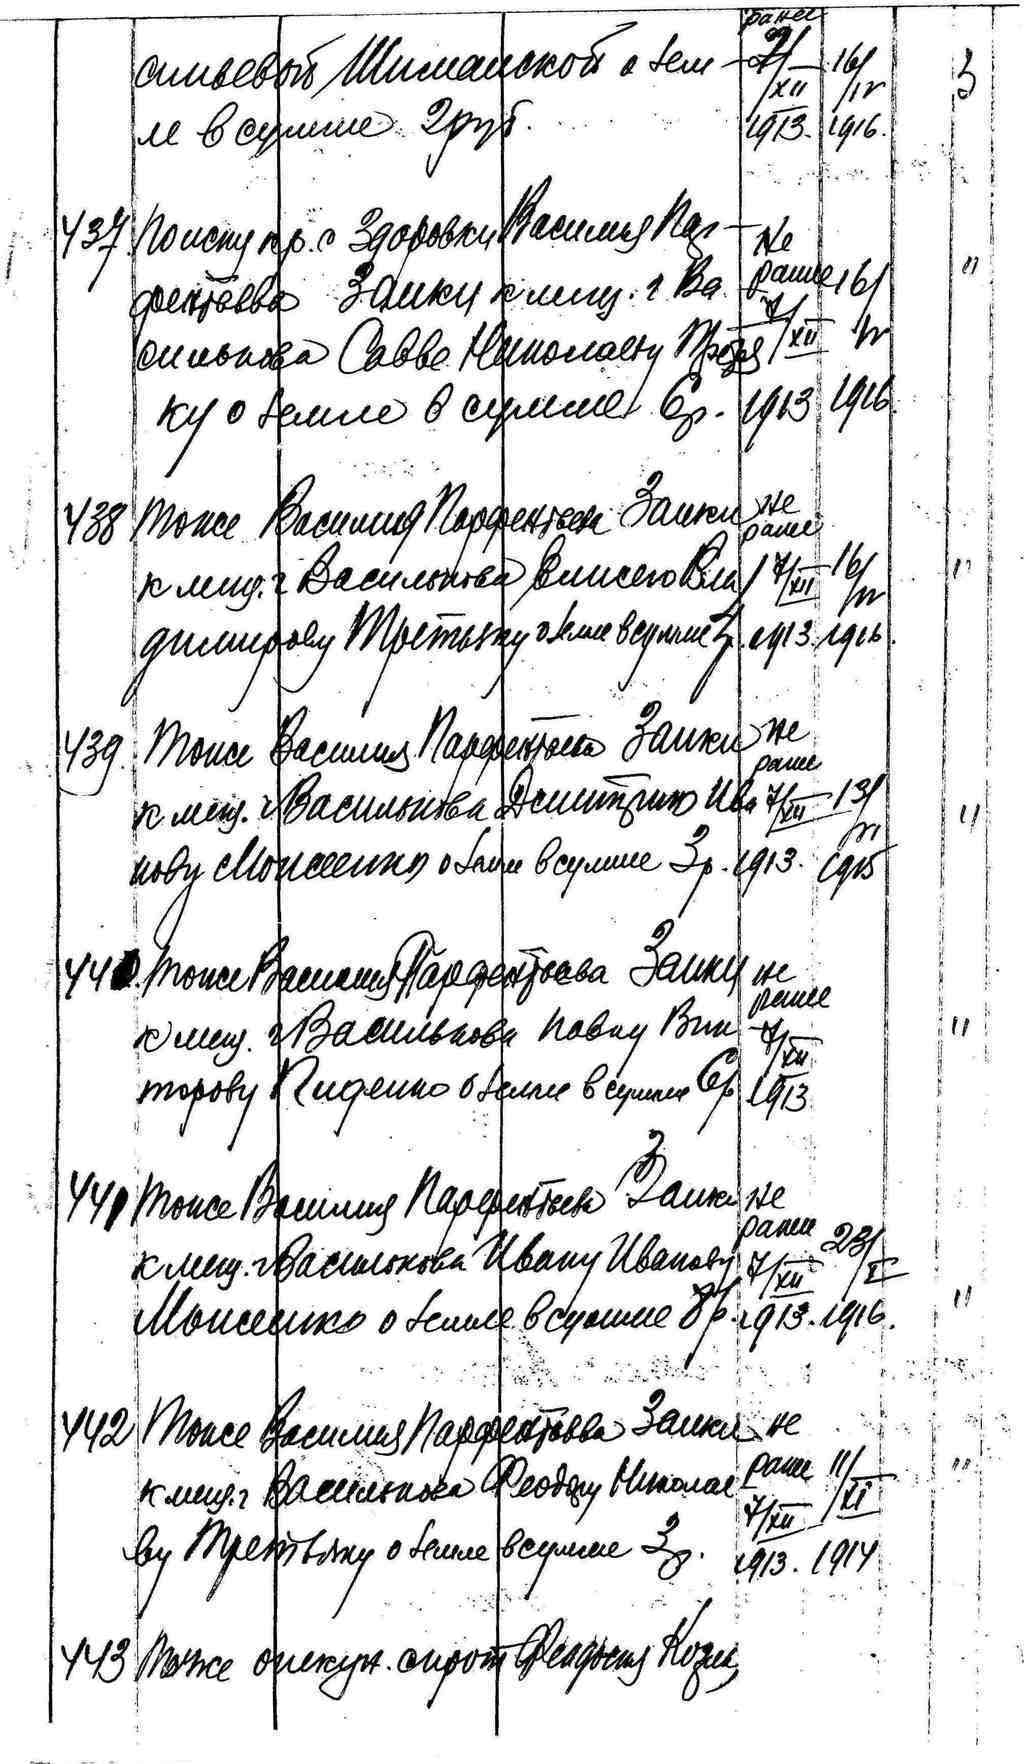 ранее
сильевой Шиманской о зем- 7/XII 16/IV 3
ле в сумме 2 руб. 1913. 1916.
437. По иску кр. с Здоровки Василия Пар- не
фентьева Заики к мещ. г. Ва ранее 16/IV "
силькова Савве Николаеву Третья 7/XII
ку о земле в сумме 6 р. 1913 1916
438 Тоже Василия Парфентьева Заики не ранее
к мещ. г Василькова Вла 7/XII 16/IV "
димирову Третьяку о земле в сумме р. 1913. 1916.
439. Тоже Василия Парфентьева Заики не ранее
к мещ. г Василькова Дмитрию Ива 7/XII 13/ "
нову Моисеенко о земле в сумме 3 р. 1913. 1915
440. Тоже Василия Парфентьева Заики не ранее
к мещ. г Василькова Павлу Вик 7/XII "
торову Пиденко о земле в сумме 6 р 1913
441 Тоже Василия Парфентьева Заики не ранее
к мещ. г Василькова Ивану Иванову 7/XII 23/X
Моисеенко о земле в сумме 8 р. 1913. 1916. "
442 Тоже Василия Парфентьева Заики не
к мещ. г Василькова Феодору Николае ранее 7/XII 11/XI "
ву Третьяку о земле в сумме 3 р. 1913. 1914
443 Тоже опекун. сирот Феодосия Козла